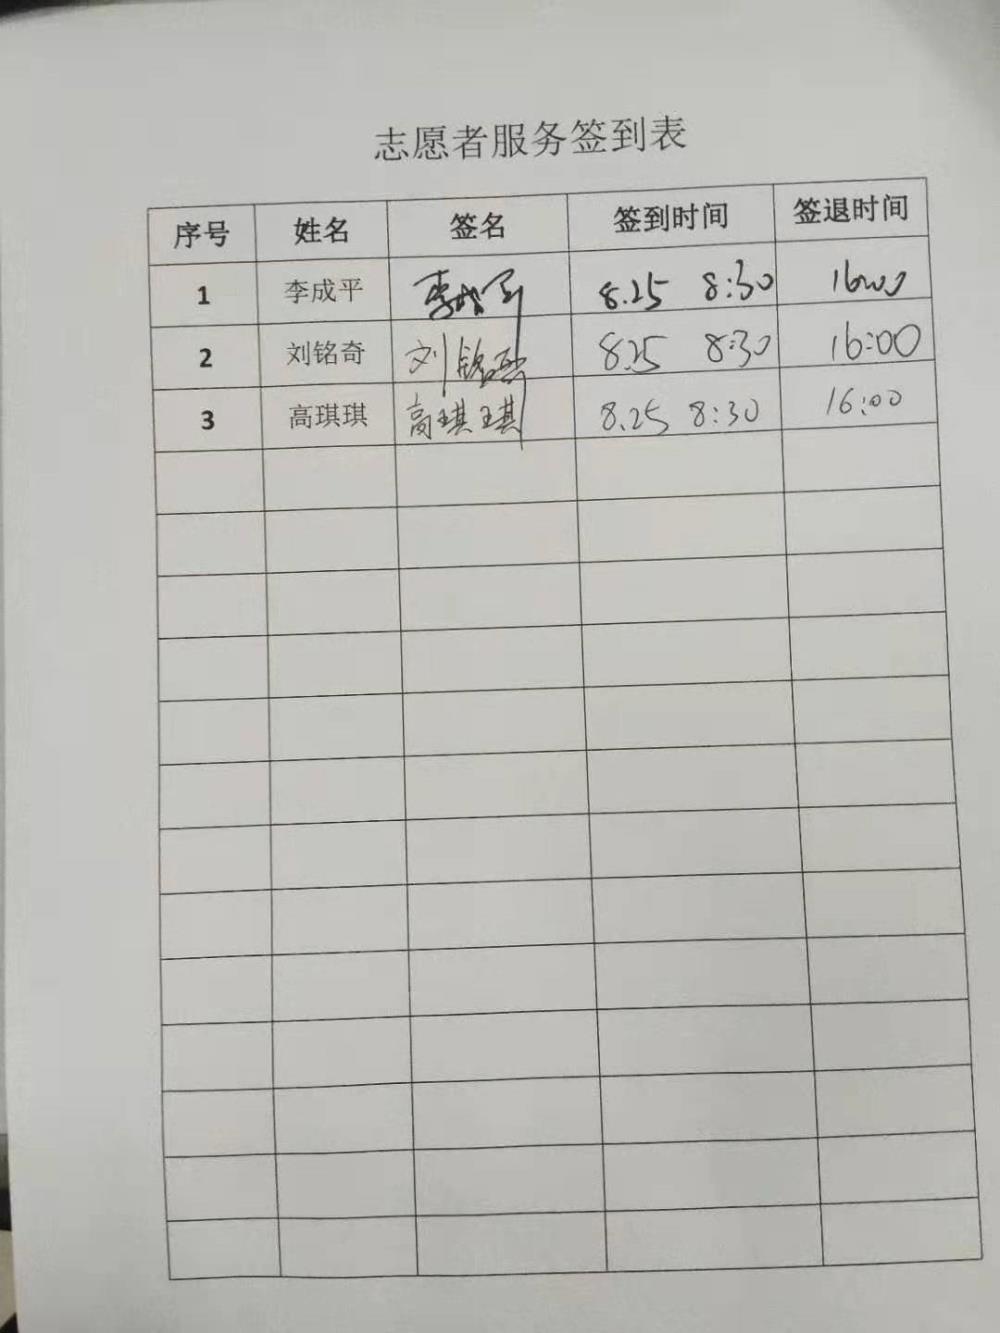 志愿者服务签到表
序号 姓名 签名 签到时间 签退时间
1 李成平 李成平 8.25 8:30 16:00
2 刘铭奇 刘铭 8.25 8:30 16:00
3 高琪琪 高琪琪 8.25 8:30 16:00